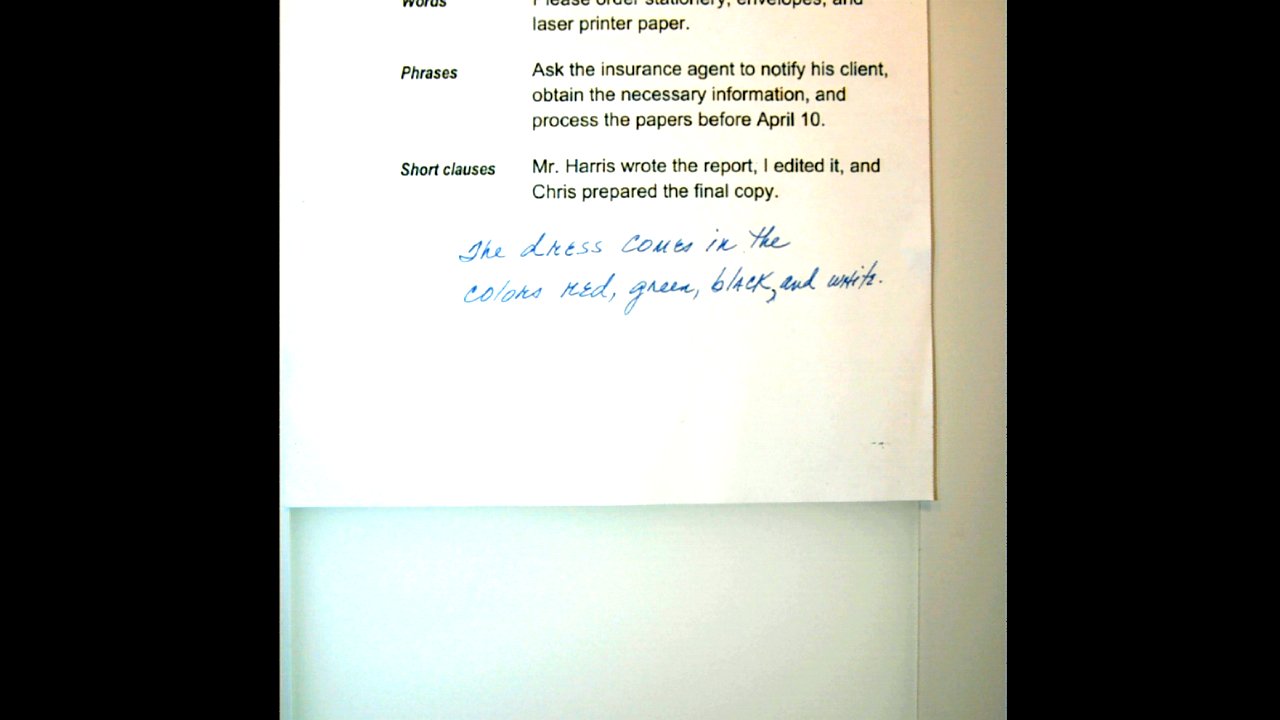 Words Please order stationery, envelopes, and
laser printer paper.
Phrases Ask the insurance agent to notify his client,
obtain the necessary information, and
process the papers before April 10.
Short clauses Mr. Harris wrote the report, I edited it, and
Chris prepared the final copy.
The dress comes in the
colors red, green, black, and white.